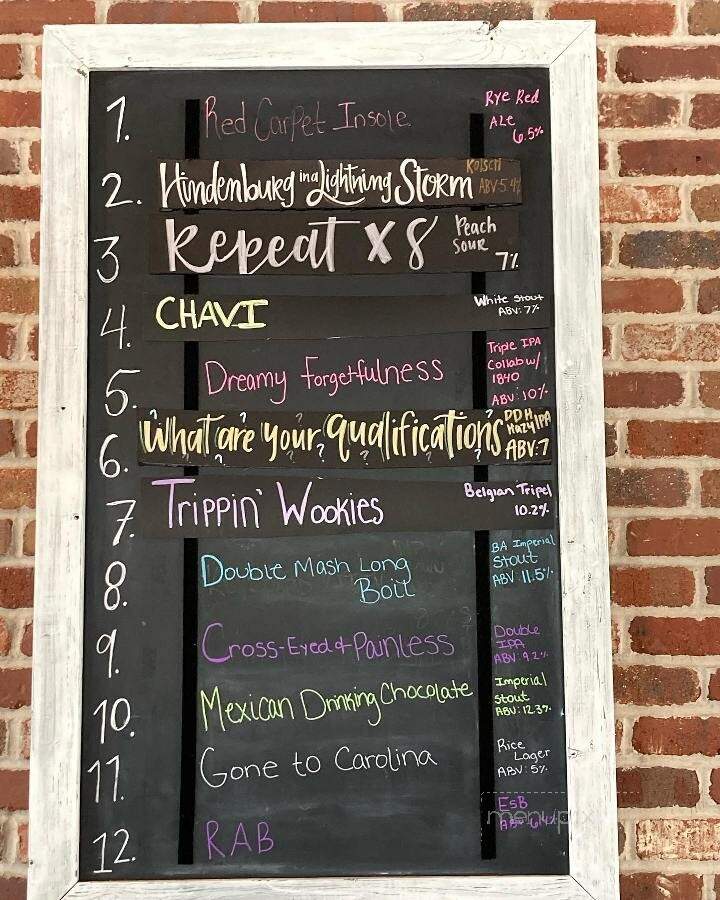 1. Red Carpet Insole Rye Red
ALE
6.5%
2. Hindenburg in a Lightning Storm Kolsch
ABV-5.4%
3 Repeat x 8 Peach
Sour
7%
4. CHAVI White Stout
ABV: 7%
5. Dreamy Forgetfulness Triple IPA
Collab w/
1840
ABV: 10%
6. What are your qualifications DDH
Hazy IPA
ABV: 7
7. Trippin' Wookies Belgian Tripel
10.2%
8. Double Mash Long
Boil
BA Imperial
Stout
ABV: 11.5%
9. Cross-Eyed + Painless Double
IPA
ABV: 9.2%
10. Mexican Drinking Chocolate Imperial
Stout
ABV: 12.3%
11. Gone to Carolina Rice
Lager
ABV: 5%
12. RAB ESB
ABV
menupix